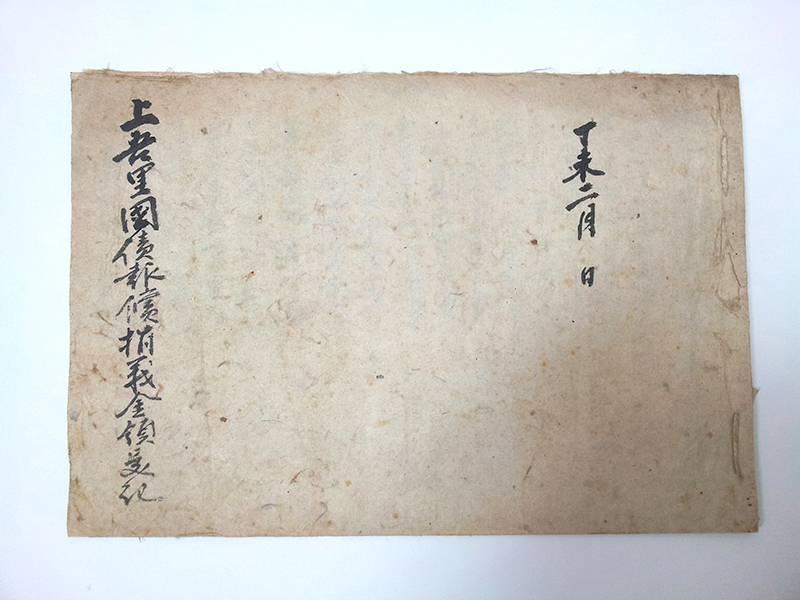 丁未二月 日
上吾里國債報償捐義金領受記